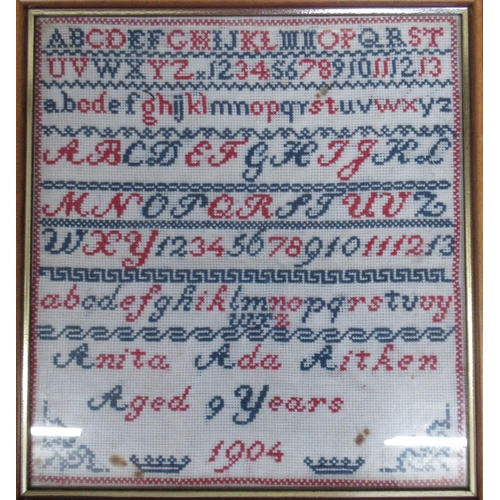 ABCDEFGHIJKLMNOPQRST
UVWXYZ×12345678910111213
abcdefghijklmnopqrstuvwxyz
ABCDEFGHIJKL
MNOPQRSTUVZ
WXY12345678910111213
abcdefghiklmnopqrstuvy
Anita Ada Aitken
Aged 9 Years
1904